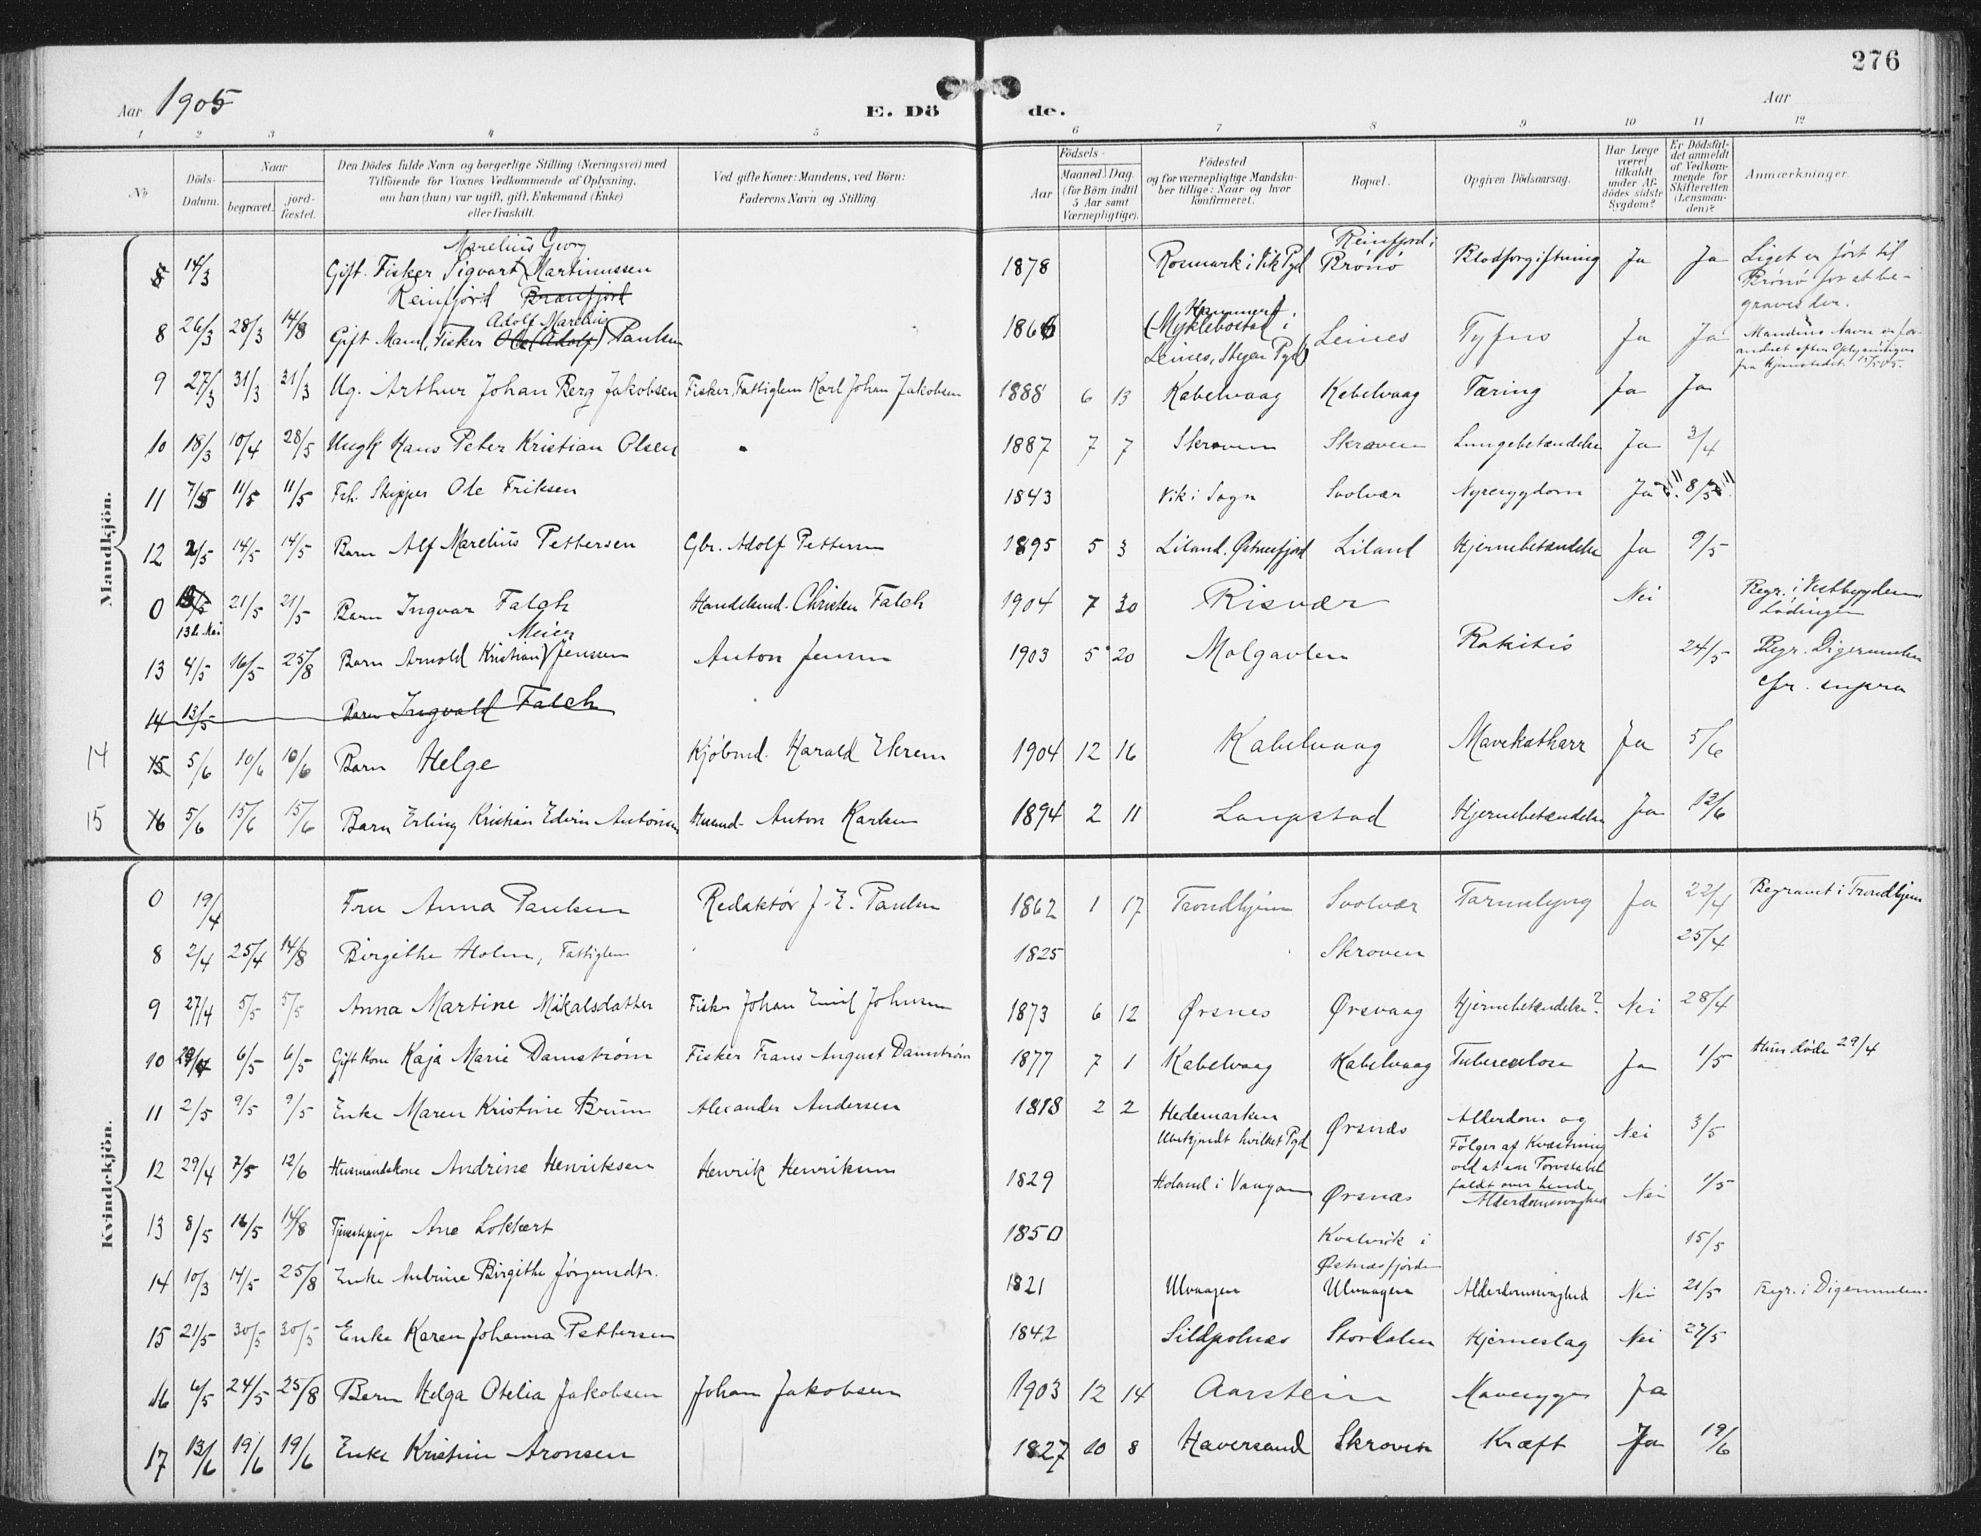 276
Aar 1905
E. Dö de.
Aar
1 2 3 4 5 6 7 8 9 10 11 12
No
Döds-Datum.
Naar
begravet.
jord-fæstet.
Den Dödes fulde Navn og borgerlige Stilling (Næringsvei) med
Tilföiende for Voxnes Vedkommende af Oplysning,
om han (hun) var ugift, gift, Enkemand (Enke)
eller fraskilt.
Ved gifte Koner: Mandens, ved Börn:
Faderens Navn og Stilling.
Födsels-
Aar
Maaned. Dag.
(for Börn indtil
5 Aar samt
Værnepligtige).
Födested
og for værnepligtige Mandska-
ber tillige: Naar og hvor
konfirmeret.
Bopæl.
Opgiven Dödsaarsag.
Har Læge
været
tilkaldt
under Af-
dödes sidste
Sygdom?
Er Dödsfal-
det anmeldt
af Vedkom-
mende for
Skifteretten
(Lensman-
den)?
Anmærkninger.
Mandkjön.
Marelius Georg
8 14/3 Gift. Fisker Sigvart Martinussen 1878 Rosmark i Vik Pgd Reinfjord i Brönö Blodforgiftning Ja Ja Liget er fört til
Reinfjord Brönö for at be-
graves der.
Adolf Marelius
8 26/3 28/3 14/8 Gift Mand, Fisker Ole (Adolf) Paulsen 1866 (Myklebostad i Leines Tyfus Ja Ja Mandens Navn er for-
Leines, Steigen Pgd) andret efter Oplysninger
fra Hjemstedet
9 27/3 31/3 31/3 Ug. Arthur Johan Berg Jakobsen Fisker, Fattiglem Karl Johan Jakobsen 1888 6 13 Kabelvaag Kabelvaag Tæring Ja Ja
10 18/3 10/4 28/5 Ungk Hans Peter Kristian Olsen 1887 7 7 Skroven Skroven Lungebetændelse Ja 3/4
11 7/5 11/5 11/5 Fch. Skipper Ole Eriksen 1843 Vik i Sogn Svolvær Nyresygdom Ja 8/5
12 2/5 14/5 14/5 Barn Alf Marelius Pettersen Gbr. Adolf Pettersen 1895 5 3 Liland, Østnesfjord Liland Hjernebetændelse Ja 9/5
0 13de Mai 21/5 21/5 Barn Ingvar Falch Handelsmd. Christen Falch 1904 7 30 Risvær Nei Begr. i Vestbygden
Lödingen
Meier
13 4/5 16/5 25/8 Barn Arnold Kristian Jenssen Anton Jensen 1903 5 20 Molgavlen Rakitis 24/5 Begr. Digermulen
14 13/5 Barn Ingvald Falch cfr. supra
14 15 5/6 10/6 10/6 Barn Helge Kjöbmd. Harald Ekrem 1904 12 16 Kabelvaag Mavekatharr Ja 5/6
15 16 5/6 15/6 15/6 Barn Erling Kristian Edvin Antonsen Husmd. Anton Karlsen 1894 2 11 Laupstad Hjernebetændelse Ja 13/6
Kvindekjön.
0 19/4 Fru Anna Paulsen Redaktör J. E. Paulsen 1862 1 17 Trondhjem Svolvær Tarmslyng Ja 22/4 Begravet i Trondhjem
8 2/4 25/4 14/8 Birgithe Holm, Fattiglem 1825 Skroven 25/4
9 27/4 5/5 5/5 Anna Martine Mikalsdatter Fisker Johan Emil Johnsen 1873 6 12 Ørsnes Ørsvaag Hjernebetændelse? Nei 28/4
10 29/4 6/5 6/5 Gift Kone Kaja Marie Damström Fisker Frans August Damström 1877 7 1 Kabelvaag Kabelvaag Tuberculose Ja 1/5 Hun döde 29/4
11 2/5 9/5 9/5 Enke Maren Kristine Bruun Alexander Andersen 1818 2 2 Hedemarken Ørsnæs Alderdom og Nei 3/5
Ubekjendt hvilket Pgd Fölger af Kvæstning
ved at en Torvstabel
faldt over hende
12 29/4 7/5 12/6 Husmandskone Andrine Henriksen Henrik Henriksen 1829 Holand i Vaagan Ørsnæs Alderdomssvaghed Nei 1/5
13 8/5 16/5 14/8 Tjenestepige Ane Lokkert 1850 Kvalvik i 15/5
Østnæsfjorden
14 10/3 14/5 25/8 Enke Anbrine Birgithe Jörgensdtr. 1821 Ulvaagen Ulvaagen Alderdomssvaghed Nei 21/5 Begr. i Digermulen
15 21/5 30/5 30/5 Enke Karen Johanna Pettersen 1842 Sildpolnæs Stordalen Hjerneslag Nei 27/5
16 6/5 24/5 25/8 Barn Helga Otelia Jakobsen Johan Jakobsen 1903 12 14 Aarstein Ja
17 13/6 19/6 19/6 Enke Kristine Aronsen 1827 10 8 Haversand Skroven Kræft Ja 19/6